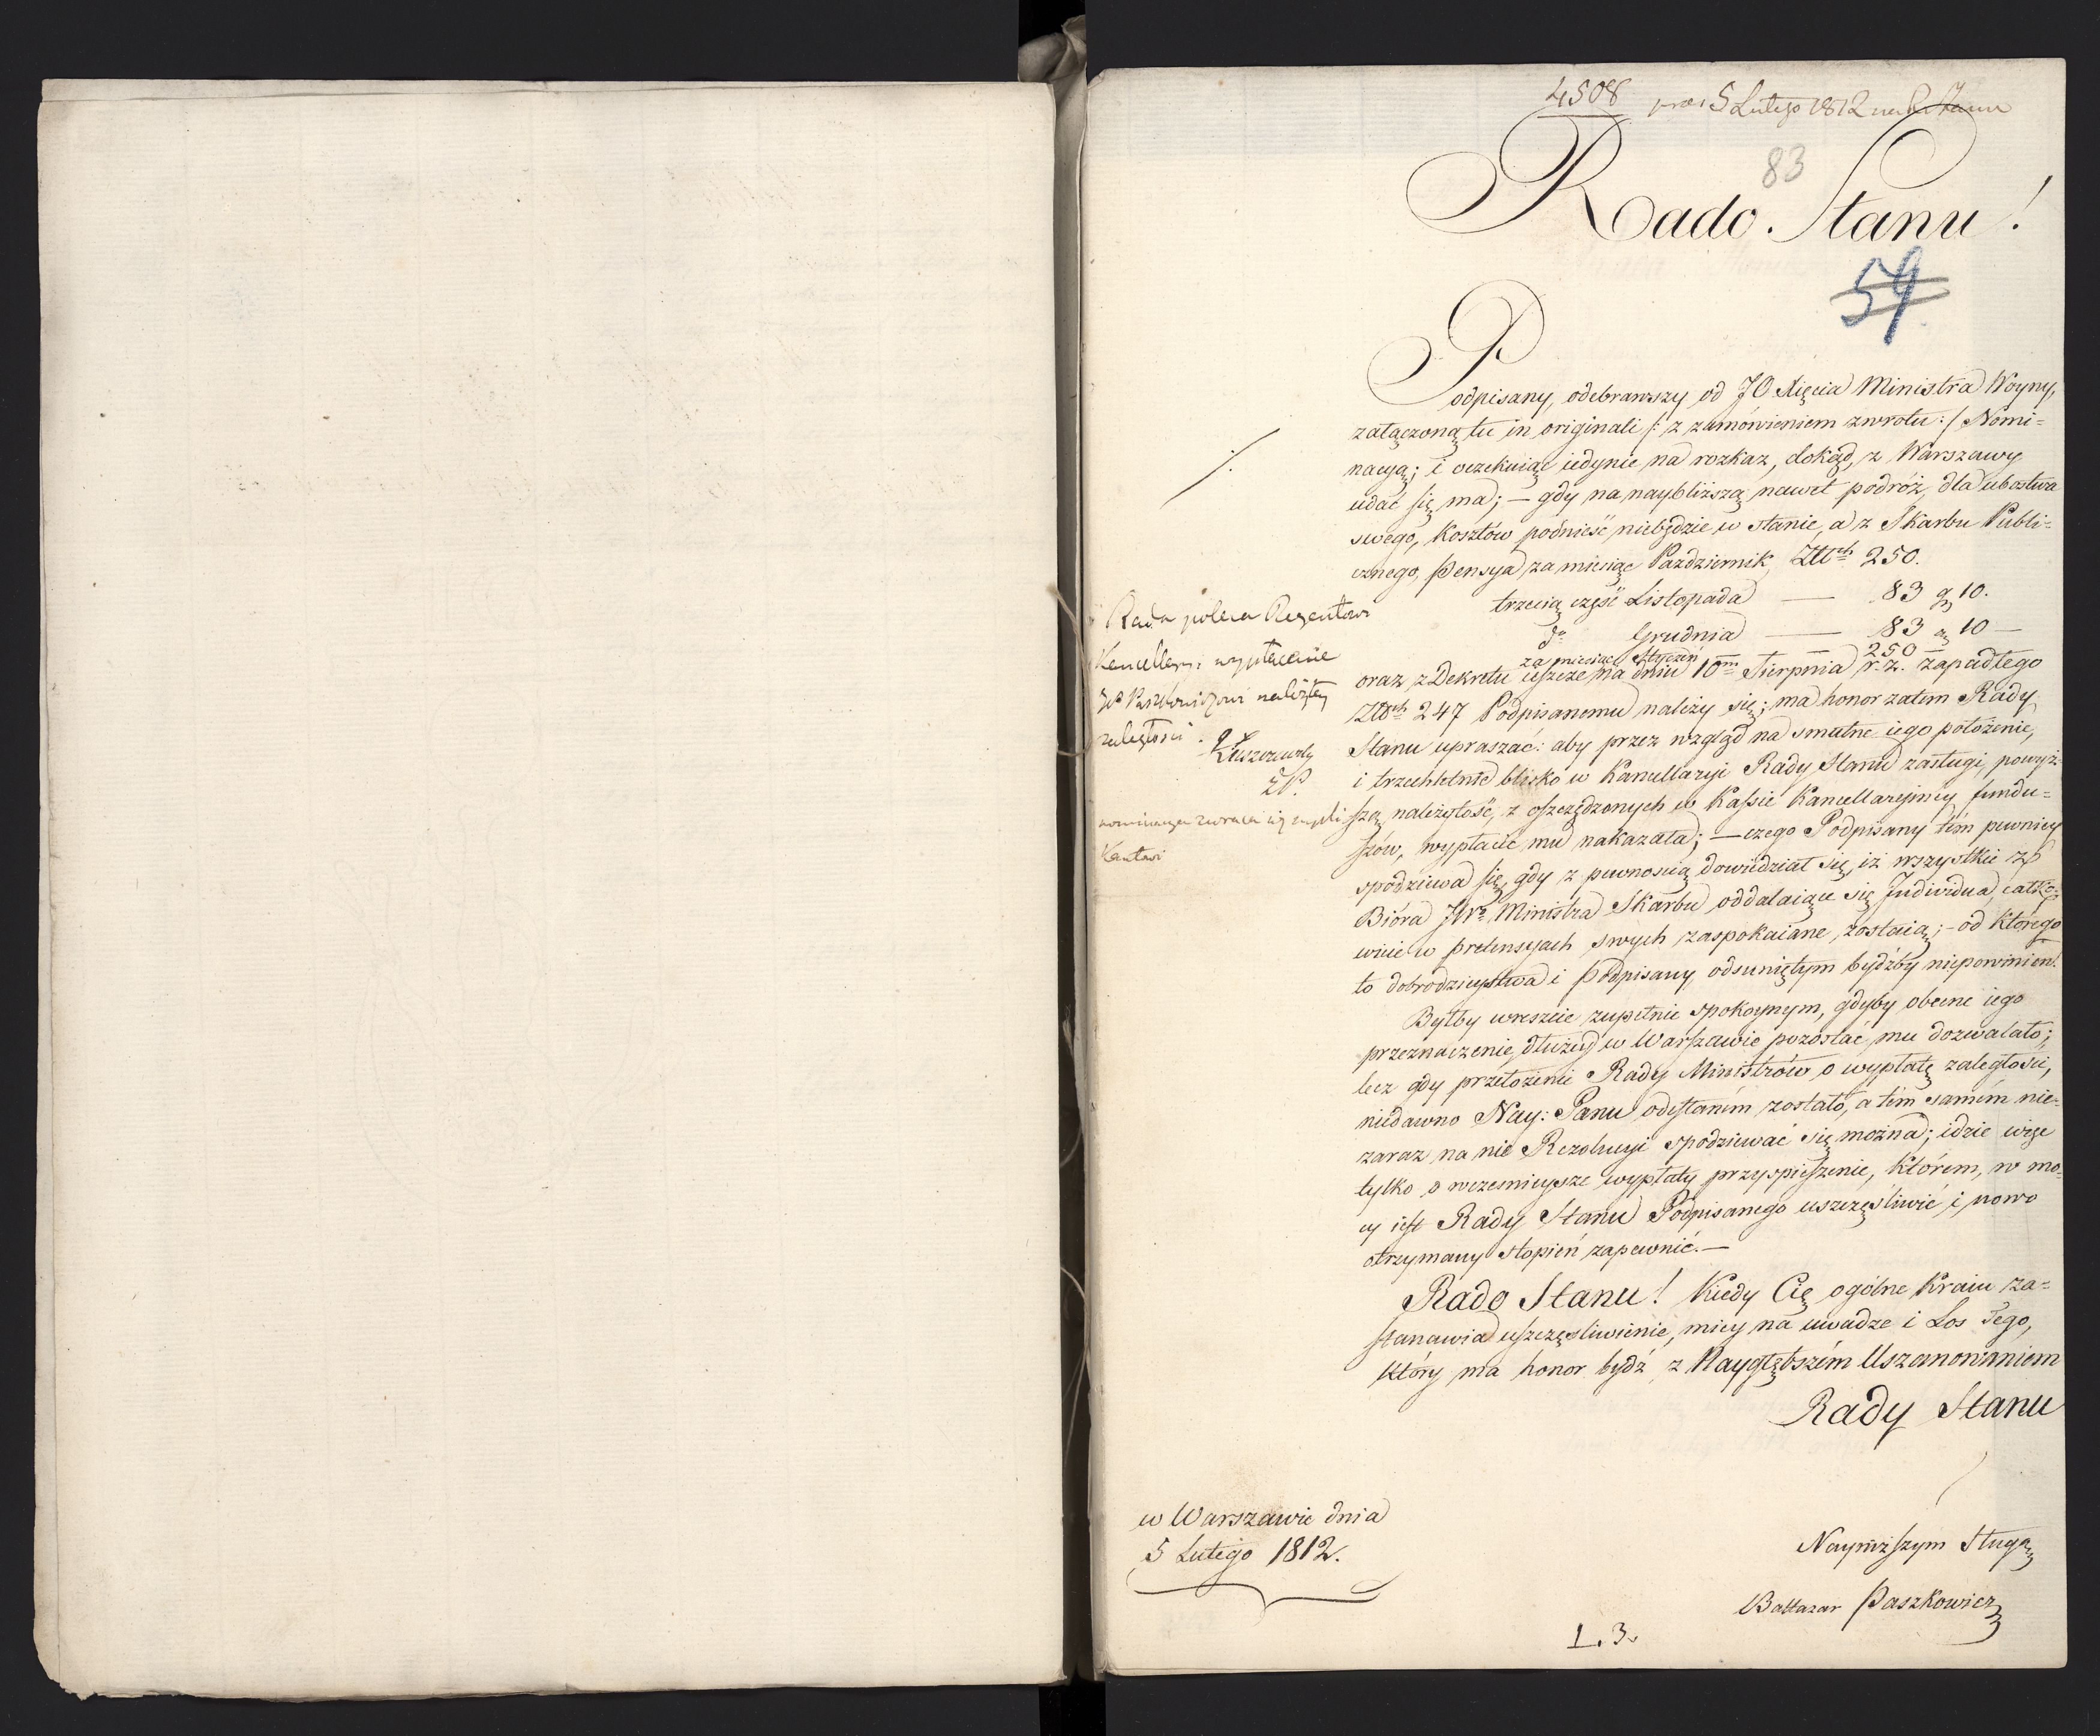 4508
5 Lutego 1812
83
Rado Stanu!
59
Podpisany, odebrawszy od JO Xięcia Ministra Woyny,
załączoną tu in originali /: z zamówieniem zwrotu :/ Nomi=
nacyą; i oczekuiąc iedynie na rozkaz, dokąd z Warszawy
udać się ma; — gdy na naybliższą nawet podróż, dla ubóstwa
swego, kosztów podnieść niebędzie w stanie, a z Skarbu Publi=
cznego, pensya za miesiąc Pazdziernik, Złłch 250.
trzecią część Listopada — 83 gr 10.
do Grudnia — 83 gr 10 —
za miesiąc Styczeń 250 —
oraz z Dekretu ieszcze na dniu 10m Sierpnia r. z. zapadłego
Złłch 247 Podpisanemu należy się; ma honor zatem Rady
Stanu upraszać: aby przez wzgląd na smutne iego położenie,
i trzechletnie blisko w Kancellaryi Rady Stanu zasługi, powyż=
szą należytość, z oszczędzonych w Kassie Kancellaryiney fundu=
szów, wypłacić mu nakazała; — czego Podpisany tém pewniey
spodziewa się, gdy z pewnością dowiedział się, iż wszystkie z
Bióra JWo Ministra Skarbu oddalaiące się Individua, całko=
wicie w pretensyach swych zaspokaiane zostaią; - od którego
to dobrodzieystwa i Podpisany odsuniętym bydźby niepowinien.
Byłby wreszcie zupełnie spokoynym, gdyby obecne iego
przeznaczenie, dłużey w Warszawie pozostać mu dozwalało;
lecz gdy przełożenie Rady Ministrów o wypłatę zaległości,
niedawno Nay: Panu odesłaném zostało, a tém samém nie=
zaraz na nie Rezolucyi spodziewać się można; idzie więc
tylko o wcześnieysze wypłaty przyspieszenie, którem, w mo=
cy iest Rady Stanu Podpisanego uszczęśliwić i nowo
otrzymany stopień zapewnić. —
Rado Stanu! Kiedy Cię ogólne Kraiu za=
stanawia uszczęsliwienie, miey na uwadze i Los Tego,
który ma honor bydź z Naygłębszém Uszanowaniem
Rady Stanu
Nayniższym Sługą
Baltazar Paszkowicz
w Warszawie dnia
5 Lutego 1812.
Rada poleca Regentowi
Kancellaryi wypłacenie
Paszkowiczowi należytey
zaległości.
nominacya zwraca się
1. 3.